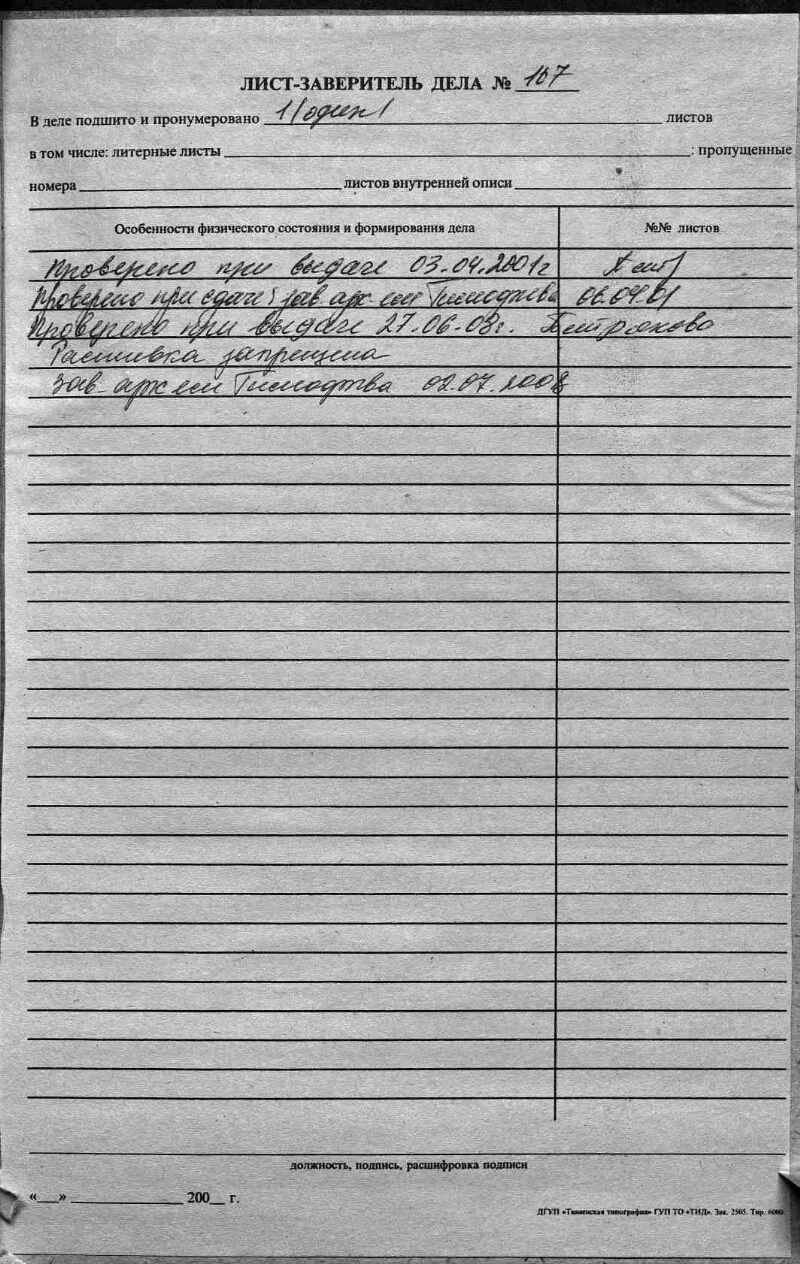 ЛИСТ-ЗАВЕРИТЕЛЬ ДЕЛА № 167
В деле подшито и пронумеровано 1/один/ листов
в том числе: литерные листы : пропущенные
номера листов внутренней описи
Особенности физического состояния и формирования дела №№ листов
Проверено при выдаче 03.04.2001г
Проверено при сдаче зав. арх-ем Тимофеева 06.04.01
Проверено при выдаче 27.06.03г.
Расшивка запрещена
Зав. арх-ем Тимофеева 02.07.2003
должность, подпись, расшифровка подписи
«__» 200__ г.
ДГУП «Тюменская типография» ГУП ТО «ТИД». Зак. 2505. Тир. 6000